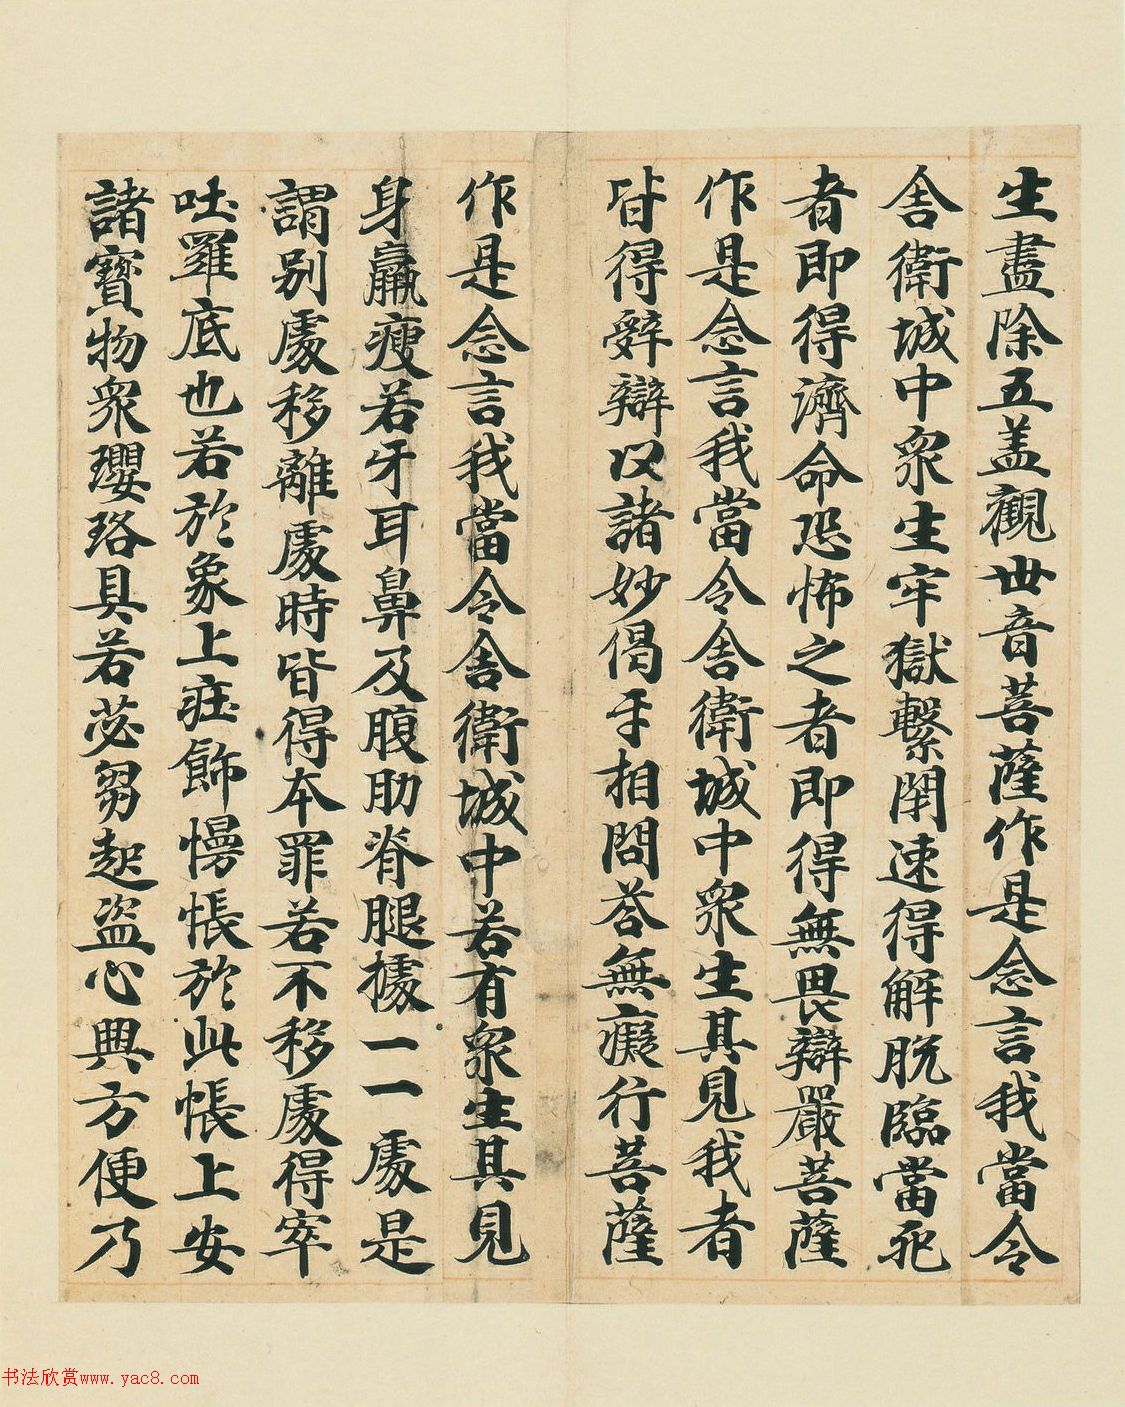 生盡除五盖觀世音菩薩作是念言我當令
舍衛城中衆生牢獄繫閇速得解脫臨當死
者即得濟命恐怖之者即得無畏辯嚴菩薩
作是念言我當令舍衛城中衆生其見我者
皆得辤辯以諸妙偈乎相問荅無癡行菩薩
作是念言我當令舍衛城中若有衆生其見
身羸瘦若牙耳鼻及腹肋脊腿據一一處是
謂别處移離處時皆得本罪若不移處得窣
吐羅底也若於象上莊飾幔帳於此帳上安
諸寳物衆瓔珞具若苾芻起盗心興方便乃
书法欣赏www.yac8.com